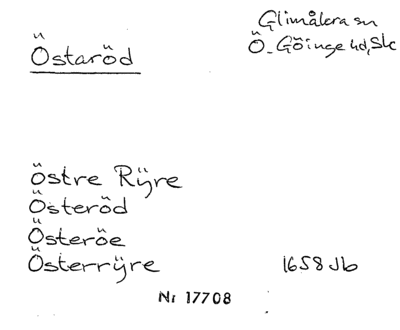 Östaröd
Glimåkra sn
Ö. Göinge hd, Sk
Östre Rÿre
Österöd
Österöe
Österrÿre
1658 Jb
Nr 17708